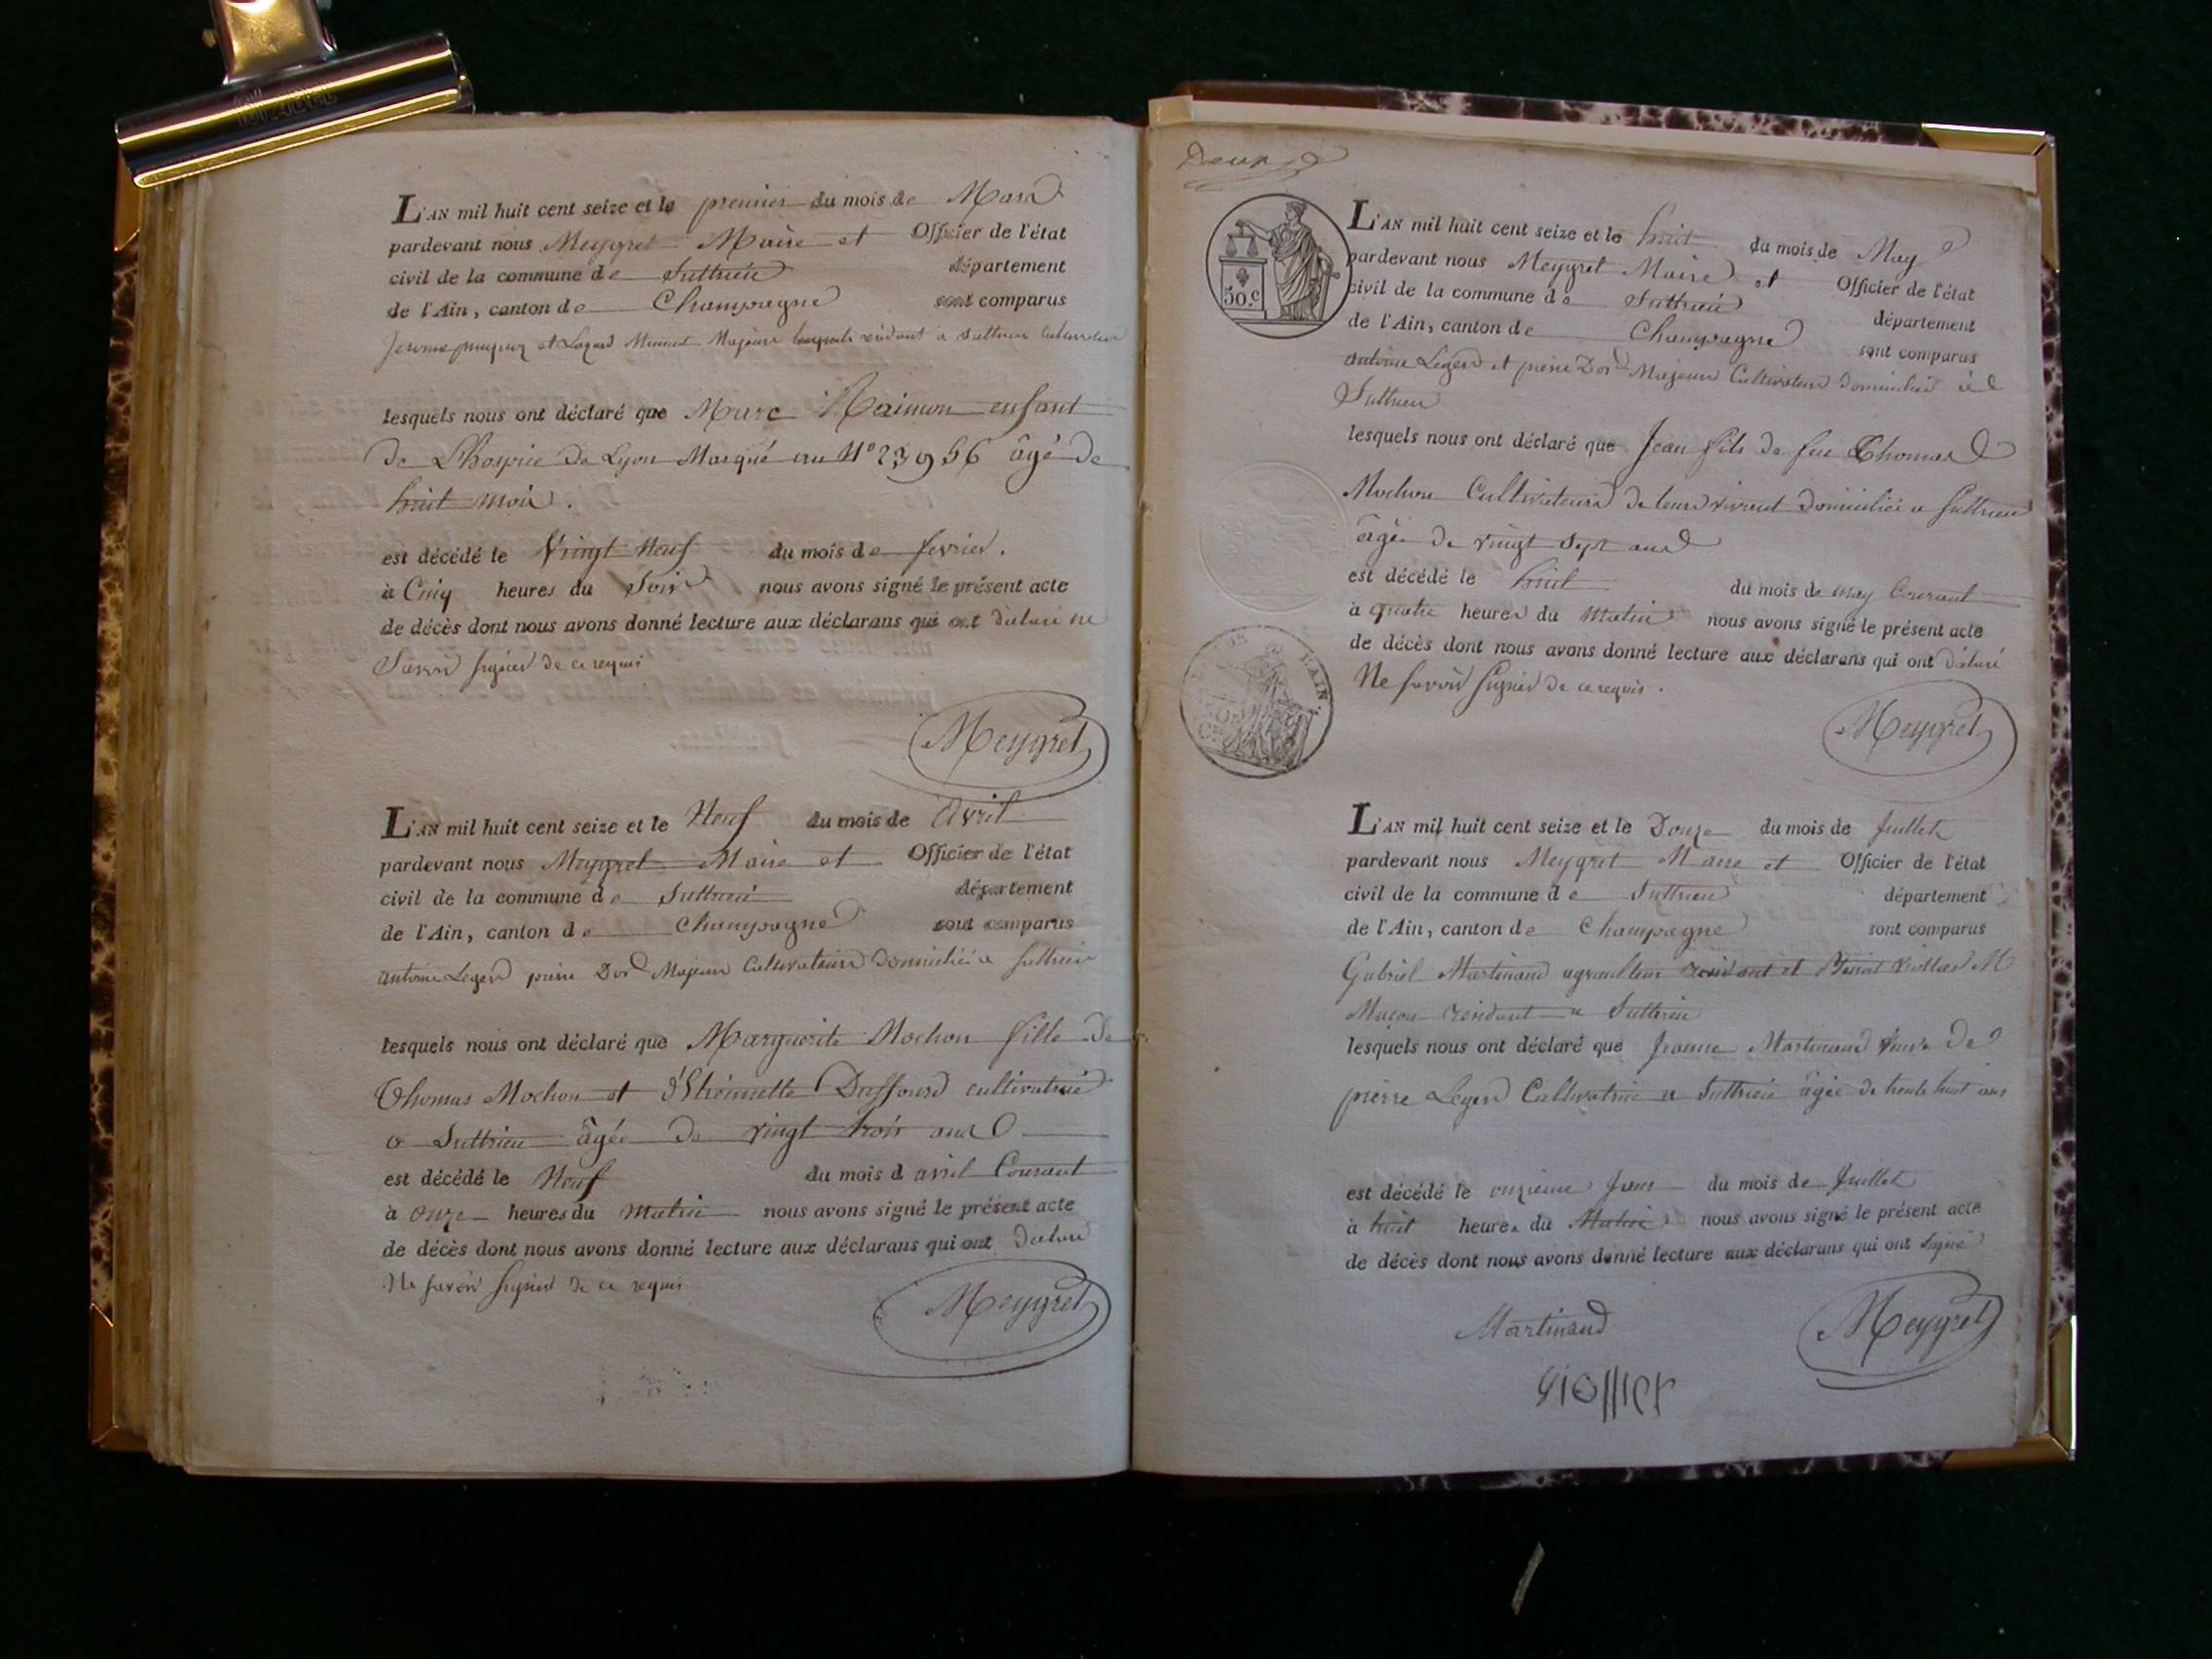 L'AN mil huit cent seize et le premier du mois de Mars
pardevant nous Meygret Maire et Officier de l'état
civil de la commune de Suttrieu département
de l'Ain, canton de Champagne sont comparus
Jerome et Majeurs a Suttrieu
lesquels nous ont déclaré que Marc Raimon enfant
de L'hospice de Lyon Marqué au N° 23956 âgé de
huit mois.
est décédé le Vingt Neuf du mois de fevrier.
à Cinq heures du Soir nous avons signé le présent acte
de décès dont nous avons donné lecture aux déclarans qui ont déclaré ne
Savoir signer de ce requis
Meygret
L'AN mil huit cent seize et le Neuf du mois de Avril
pardevant nous Meygret Maire et Officier de l'état
civil de la commune de Suttrieu département
de l'Ain, canton de Champagne sont comparus
antoine Leger pierre Dor Majeurs Cultivateurs domiciliés a Suttrieu
lesquels nous ont déclaré que Marguerite Mochon fille de
Thomas Mochon et d'Ethiennette Duffourd cultivatrice
a Suttrieu âgée de vingt trois ans
est décédé le Neuf du mois d avril Courant
à onze heures du matin nous avons signé le présent acte
de décès dont nous avons donné lecture aux déclarans qui ont déclaré
Ne savoir signer de ce requis
Meygret
Deux
50.c
L'AN mil huit cent seize et le huit du mois de May
pardevant nous Meygret Maire et Officier de l'état
civil de la commune de Suttrieu département
de l'Ain, canton de Champagne sont comparus
antoine Leger et pierre Dor Majeurs Cultivateurs domiciliés à
Suttrieu
lesquels nous ont déclaré que Jean fils de feu Thomas
Mochon Cultivateurs de leurs vivant domiciliés a Suttrieu
âgé de vingt sept ans
est décédé le huit du mois de may Courant
à quatre heures du matin nous avons signé le présent acte
de décès dont nous avons donné lecture aux déclarans qui ont déclaré
Ne savoir signer de ce requis.
AIN.
Meygret
L'AN mil huit cent seize et le Douze du mois de Juillet
pardevant nous Meygret Maire et Officier de l'état
civil de la commune de Suttrieu département
de l'Ain, canton de Champagne sont comparus
Gabriel Martinand agriculteur residant et Benoit
Maçon residant a Suttrieu
lesquels nous ont déclaré que Jeanne Martinand veuve de
pierre Leger Cultivatrice a Suttrieu âgée de trente huit ans
est décédé le onzieme Jour du mois de Juillet
à huit heures du Matin nous avons signé le présent acte
de décès dont nous avons donné lecture aux déclarans qui ont signé
Martinand
Meygret